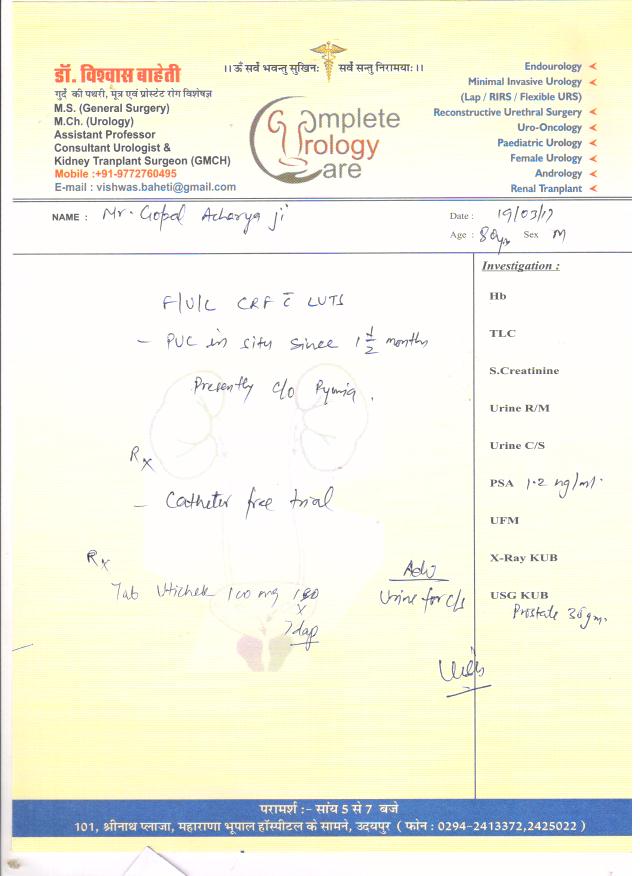 ।।ॐ सर्वे भवन्तु सुखिनः सर्वे सन्तु निरामयाः।।
डॉ. विश्वास बाहेती
गुर्दे की पथरी, मूत्र एवं प्रोस्टंट रोग विशेषज्ञ
M.S. (General Surgery)
M.Ch. (Urology)
Assistant Professor
Consultant Urologist &
Kidney Tranplant Surgeon (GMCH)
Mobile :+91-9772760495
E-mail : vishwas.baheti@gmail.com
Complete
Urology
Care
Endourology
Minimal Invasive Urology
(Lap / RIRS / Flexible URS)
Reconstructive Urethral Surgery
Uro-Oncology
Paediatric Urology
Female Urology
Andrology
Renal Tranplant
NAME : Mr. Gopal Acharya ji
Date : 19/03/17
Age : 80yr Sex M
F/U/C CRF c̄ LUTS
- PUC in situ since 1 1/2 months
Presently c/o Pyuria.
Rx
- Catheter free trial
Rx
Tab 100 mg
x
7 days
Adv
Urine for C/s
Investigation :
Hb
TLC
S.Creatinine
Urine R/M
Urine C/S
PSA 1.2 ng/ml.
UFM
X-Ray KUB
USG KUB
Prostate 36 gm.
परामर्श :- सांय 5 से 7 बजे
101, श्रीनाथ प्लाजा, महाराणा भूपाल हॉस्पीटल के सामने, उदयपुर ( फोन : 0294-2413372,2425022 )